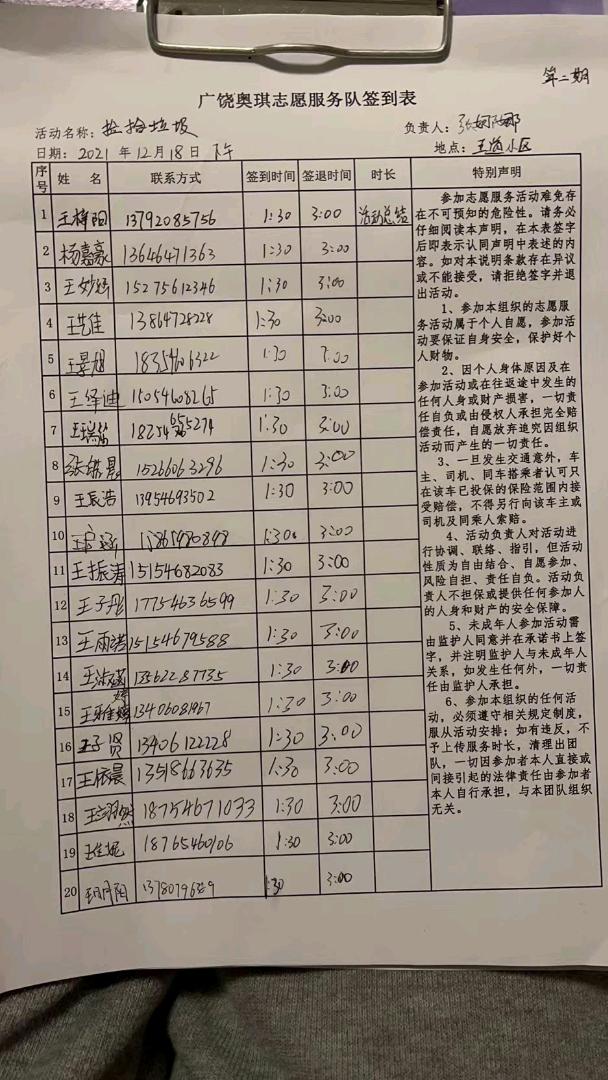 第二期
广饶奥琪志愿服务队签到表
活动名称：捡拾垃圾 负责人：
日期：2021年12月18日下午 地点：王道小区
序号 姓名 联系方式 签到时间 签退时间 时长 特别声明
1 王梓阳 13792085756 1:30 3:00 活动总结
2 杨嘉豪 13646471363 1:30 3:00
3 15275612346 1:30 3:00
4 王艺佳 13864728228 1:30 3:00
5 王景旭 18354606322 1:30 3:00
6 王泽迪 15054608265 1:30 3:00
7 1:30 3:00
8 15266063296 1:30 3:00
9 王辰浩 13954693502 1:30 3:00
10 1:30 3:00
11 王振涛 15154682083 1:30 3:00
12 王子彤 17754636599 1:30 3:00
13 王雨诺 15154679588 1:30 3:00
14 王淑涵 13562287735 1:30 3:00
15 13406081967 1:30 3:00
16 王子贤 13406122228 1:30 3:00
17 王依晨 13518663635 1:30 3:00
18 18754671033 1:30 3:00
19 18765460106 1:30 3:00
20 1:30 3:00
参加志愿服务活动难免存
在不可预知的危险性。请务必
仔细阅读本声明，在本表签字
后即表示认同声明中表述的内
容。如对本说明条款存在异议
或不能接受，请拒绝签字并退
出活动。
1、参加本组织的志愿服
务活动属于个人自愿，参加活
动要保证自身安全，保护好个
人财物。
2、因个人身体原因及在
参加活动或在往返途中发生的
任何人身或财产损害，一切责
任自负或由侵权人承担完全赔
偿责任，自愿放弃追究因组织
活动而产生的一切责任。
3、一旦发生交通意外，车
主、司机、同车搭乘者认可只
在该车已投保的保险范围内接
受赔偿，不得另行向该车主或
司机及同乘人索赔。
4、活动负责人对活动进
行协调、联络、指引，但活动
性质为自由结合、自愿参加、
风险自担、责任自负。活动负
责人不担保或提供任何参加人
的人身和财产的安全保障。
5、未成年人参加活动需
由监护人同意并在承诺书上签
字，并注明监护人与未成年人
关系，如发生任何外，一切责
任由监护人承担。
6、参加本组织的任何活
动，必须遵守相关规定制度，
服从活动安排；如有违反，不
予上传服务时长，清理出团
队，一切因参加者本人直接或
间接引起的法律责任由参加者
本人自行承担，与本团队组织
无关。